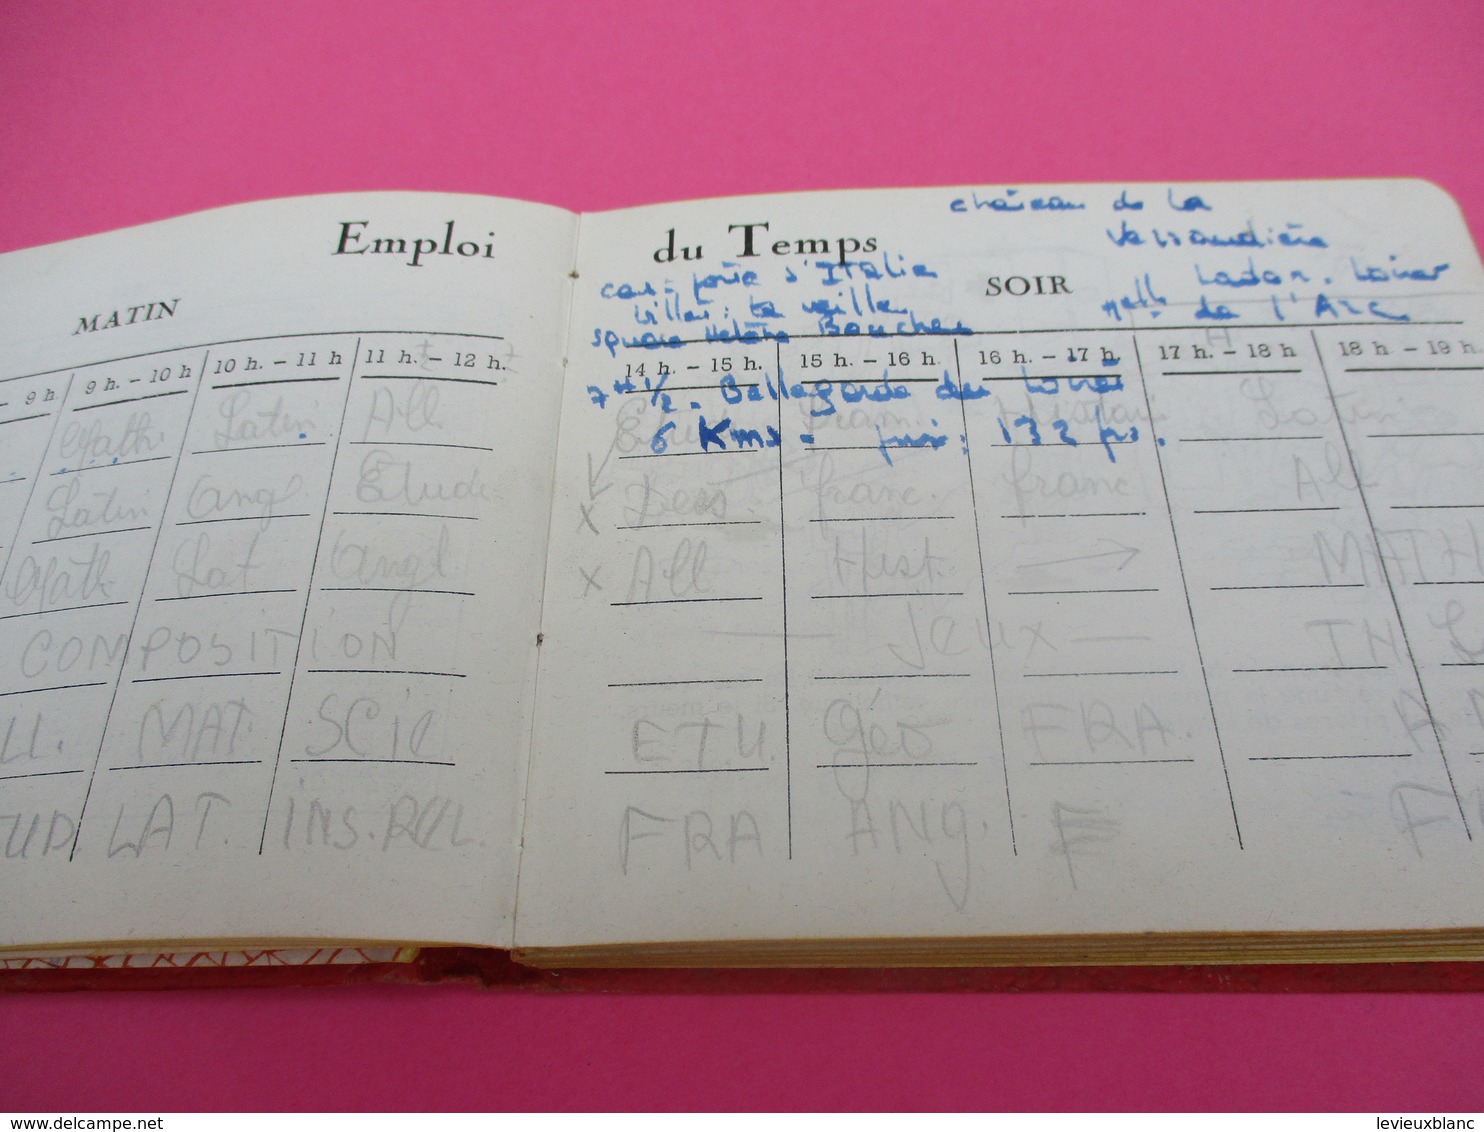 Emploi du Temps
château de la
Ladon. Loiret
Melle de l'Arc
car = porte d'Italie
billet: la veille
square Hélène Boucher
MATIN
SOIR
9 h.
9 h. – 10 h
10 h. – 11 h
11 h. – 12 h.
14 h. – 15 h.
15 h. – 16 h.
16 h. – 17 h.
17 h. – 18 h
18 h. – 19 h.
7H 1/2 - Bellegarde du Loiret
6 Kms - prix: 132 frs.
Math Latin All Latin
Latin Ang Etude Dess. franc. franc All
Math Lat Angl All Hist. MATH
COMPOSITION Jeux
MAT. SCIE ETU Géo FRA.
LAT. INS. FRA ANG. F
www.delcampe.net
levieuxblanc